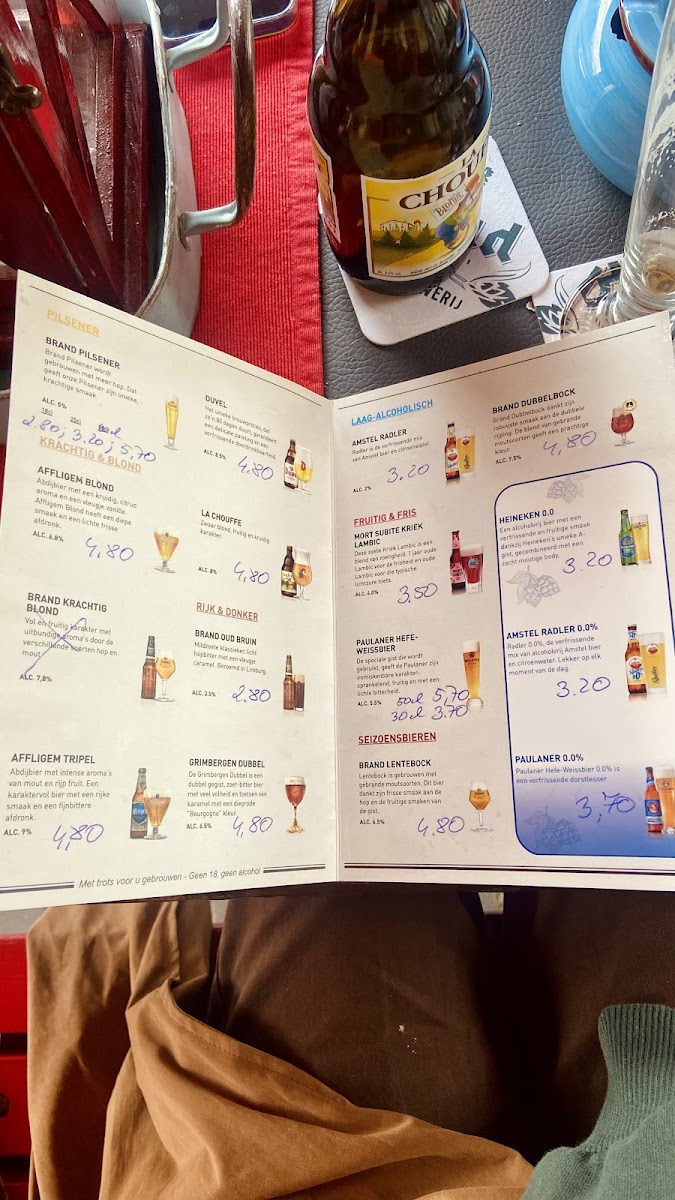 LA
CHOUFFE
Blonde
ERIJ
PILSENER
BRAND PILSENER
Brand Pilsener wordt
gebrouwen met meer hop. Dat
geeft onze Pilsener zijn unieke,
krachtige smaak.
ALC. 5%
18cl 25cl 50cl
2.80; 3.20; 5,70
KRACHTIG & BLOND
AFFLIGEM BLOND
Abdijbier met een kruidig, citrus
aroma en een vleugje vanille.
Affligem Blond heeft een diepe
smaak en een lichte frisse
afdronk.
ALC. 6.8%
4,80
BRAND KRACHTIG
BLOND
Vol en fruitig karakter met
uitbundige aroma's door de
verschillende soorten hop en
mout
ALC. 7,8%
AFFLIGEM TRIPEL
Abdijbier met intense aroma's
van mout en rijp fruit. Een
karaktervol bier met een rijke
smaak en een fijnbittere
afdronk.
ALC. 9%
4,80
DUVEL
Het unieke brouwproces, dat
zo'n 90 dagen duurt, garandeert
een delicate pareling en een
verfrissende doordrinkbaarheid.
ALC. 8.5%
4,80
LA CHOUFFE
Zwaar blond, fruitig en kruidig
karakter.
ALC. 8%
4,80
RIJK & DONKER
BRAND OUD BRUIN
Mildzoete klassieker, licht
hopbitter met een vleugje
caramel. Beroemd in Limburg.
ALC. 3.5%
2.80
GRIMBERGEN DUBBEL
De Grimbergen Dubbel is een
dubbel gegist, zoet-bitter bier
met veel volheid en toetsen van
karamel met een dieprode
"Bourgogne" kleur.
ALC. 6.5%
4,80
Met trots voor u gebrouwen - Geen 18, geen alcohol
LAAG-ALCOHOLISCH
AMSTEL RADLER
Radler is de verfrissende mix
van Amstel bier en citroenwater.
ALC. 2%
3.20
FRUITIG & FRIS
MORT SUBITE KRIEK
LAMBIC
Deze zoete Kriek Lambic is een
blend van zoetigheid, 1 jaar oude
Lambic voor de frisheid en oude
Lambic voor die typische
lichtzure toets.
ALC. 4.0%
3,50
PAULANER HEFE-
WEISSBIER
De speciale gist die wordt
gebruikt, geeft de Paulaner zijn
onmiskenbare karakter:
sprankelend, fruitig en met een
lichte bitterheid.
ALC. 5.5%
50cl 5,70
30cl 3.70
SEIZOENSBIEREN
BRAND LENTEBOCK
Lentebock is gebrouwen met
gebrande moutsoorten. Dit bier
dankt zijn frisse smaak aan de
hop en de fruitige smaken van
de gist.
ALC. 6.5%
4,80
BRAND DUBBELBOCK
Brand Dubbelbock dankt zijn
robuuste smaak aan de dubbele
rijping. De blend van gebrande
moutsoorten geeft een prachtige
kleur.
ALC. 7.5%
4,80
HEINEKEN 0.0
Een alcoholvrij bier met een
verfrissende en fruitige smaak
dankzij Heineken's unieke A-
gist, gecombineerd met een
zacht moutige body.
3.20
AMSTEL RADLER 0.0%
Radler 0.0%, de verfrissende
mix van alcoholvrij Amstel bier
en citroenwater. Lekker op elk
moment van de dag.
3.20
PAULANER 0.0%
Paulaner Hefe-Weissbier 0.0% is
een verfrissende dorstlesser
3,70